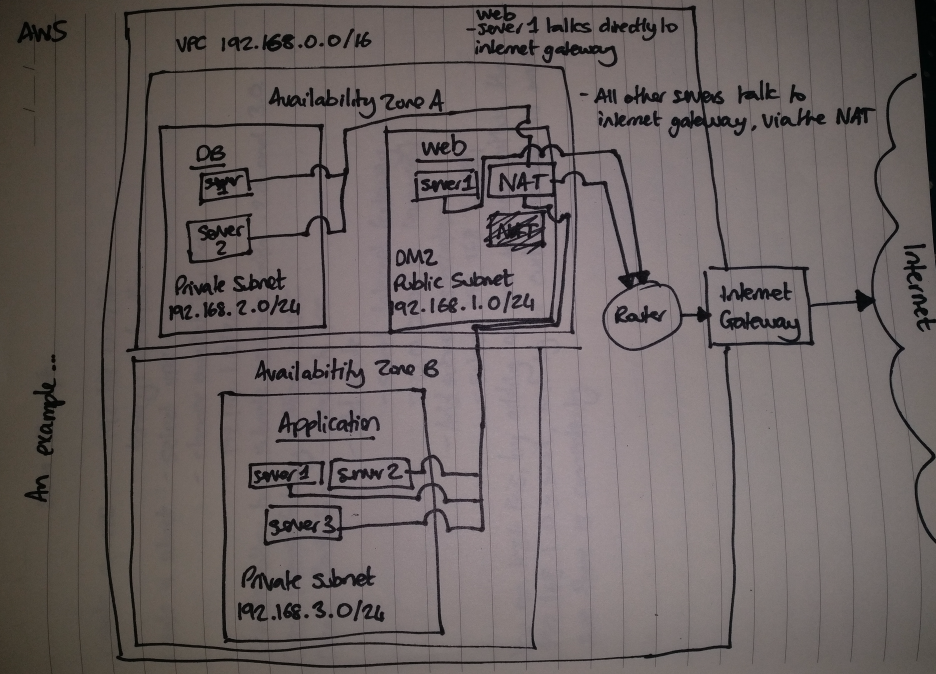 AWS
VPC 192.168.0.0/16
web
- server 1 talks directly to
internet gateway
- All other servers talk to
internet gateway, via the NAT
Availability Zone A
DB
server
1
server
2
Private Subnet
192.168.2.0/24
web
server1
NAT
DMZ
Public Subnet
192.168.1.0/24
Router
Internet
Gateway
Internet
Availabitity Zone B
Application
server1
server2
server3
Private subnet
192.168.3.0/24
An example...